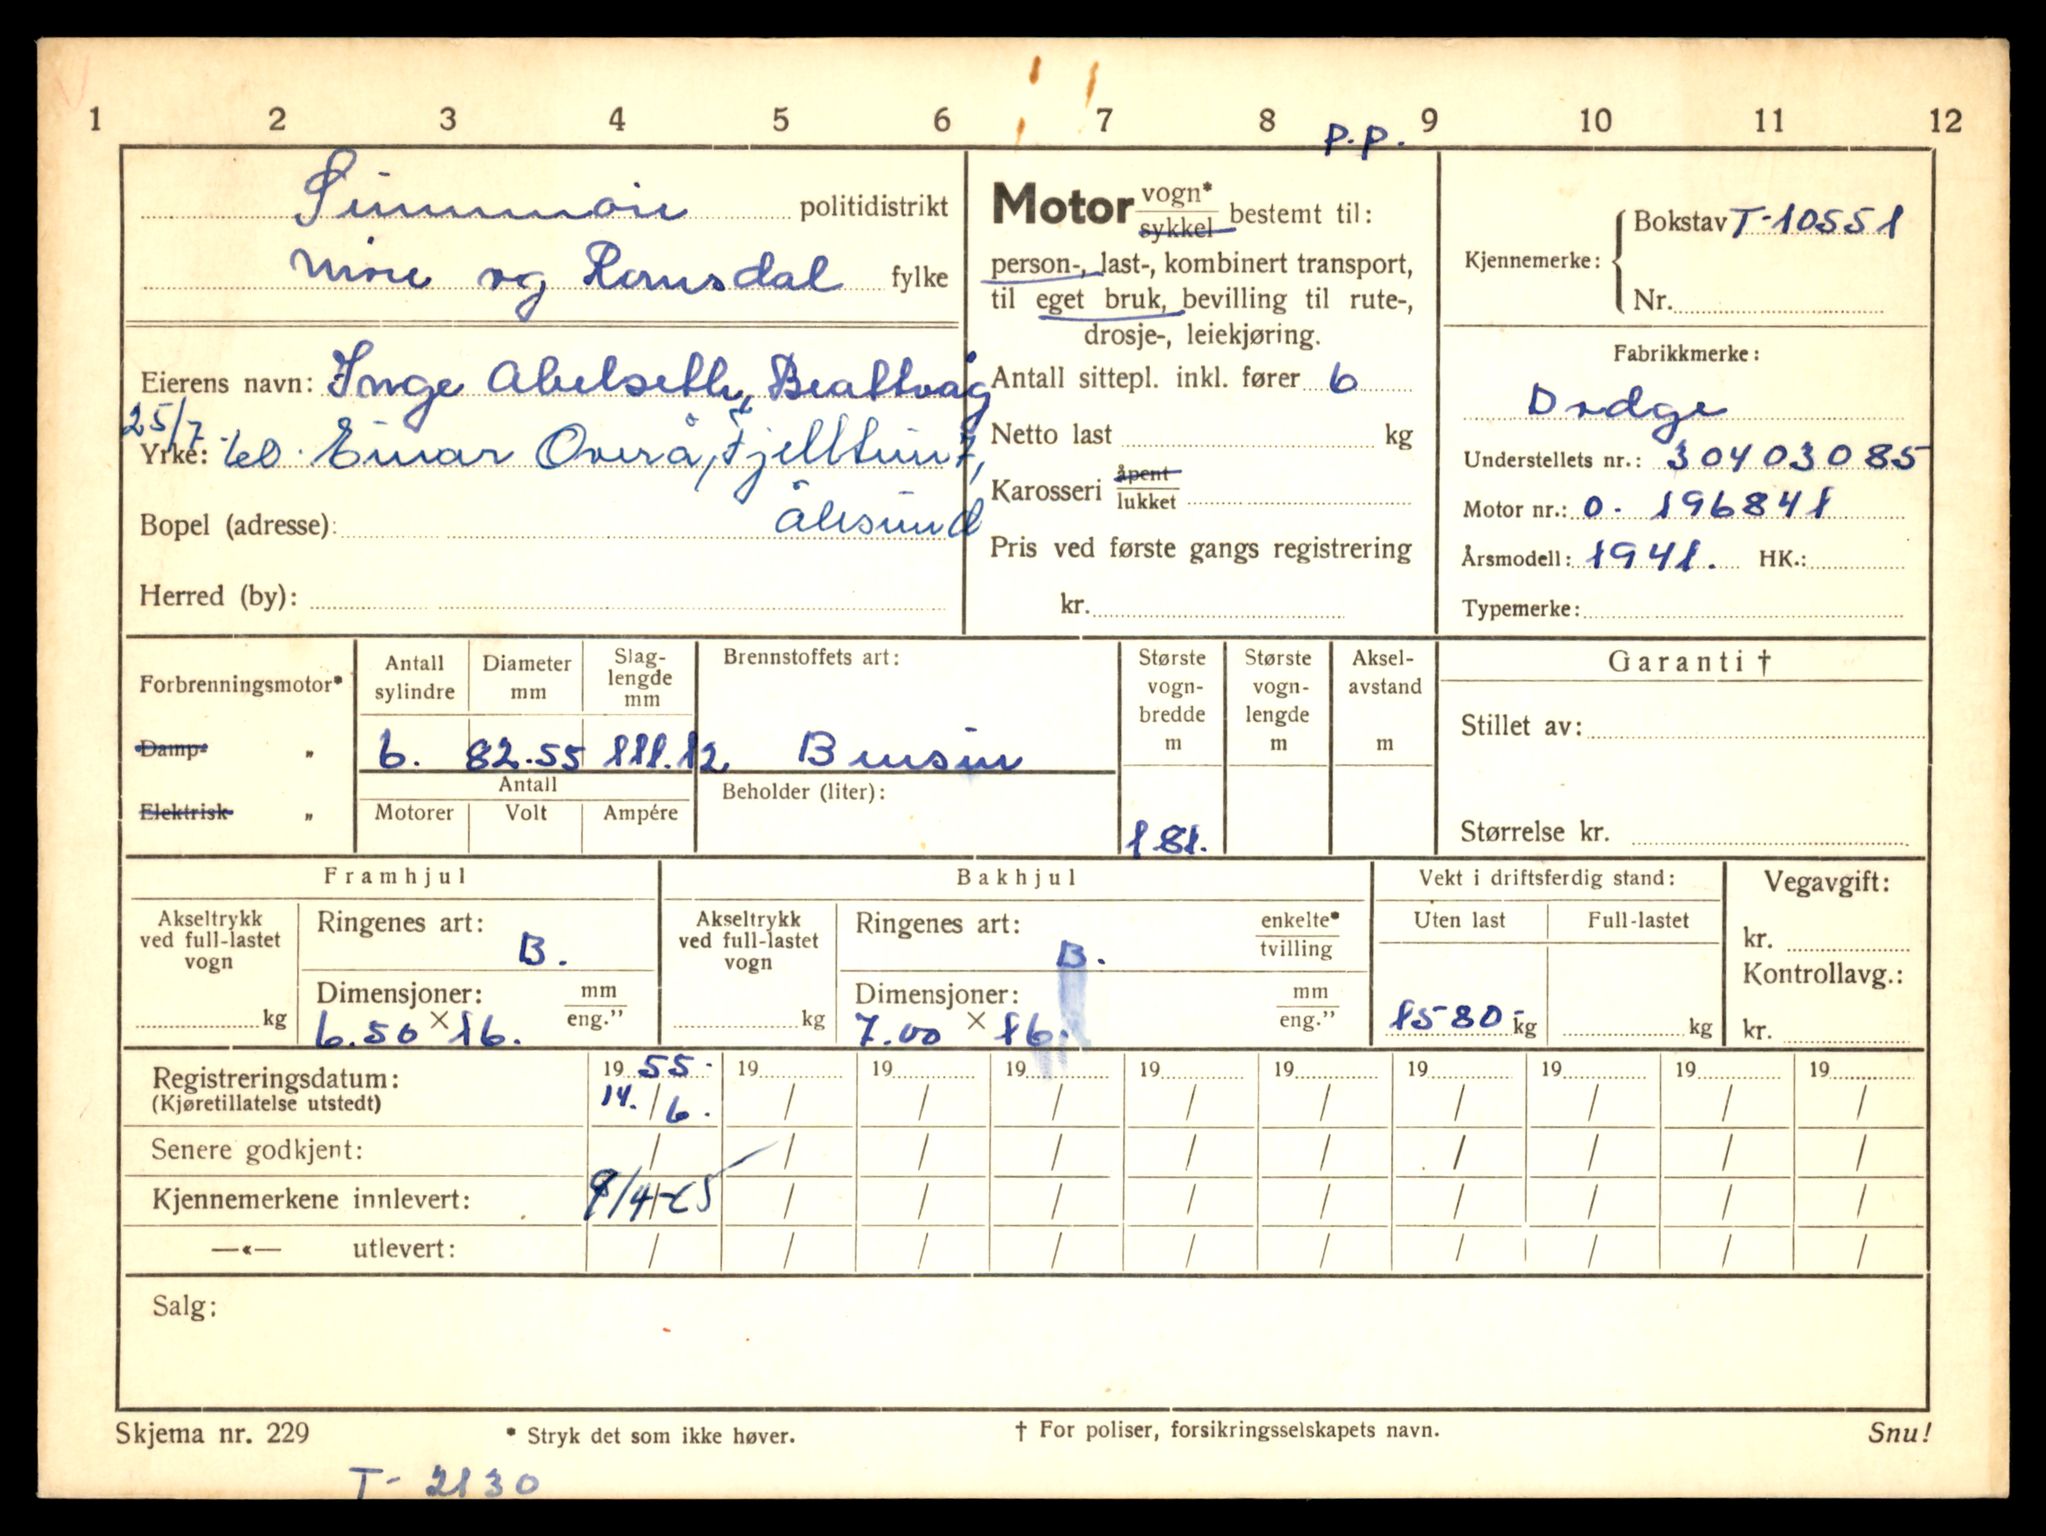 1 2 3 4 5 6 7 8 9 10 11 12
p.p.
Sunnmøre politidistrikt
Møre og Romsdal fylke
Eierens navn: Inge Abelseth, Brattvåg
25/7
Yrke: 60. Einar Overå, Fjelltun 7,
Bopel (adresse): Ålesund
Herred (by):
Motor vogn* / sykkel bestemt til:
person-, last-, kombinert transport,
til eget bruk, bevilling til rute-,
drosje-, leiekjøring.
Antall sittepl. inkl. fører 6
Netto last kg
Karosseri åpent / lukket
Pris ved første gangs registrering
kr.
Kjennemerke: Bokstav T-10551
Nr.
Fabrikkmerke:
Dodge
Understellets nr.: 30403085
Motor nr.: D. 196841
Årsmodell: 1941. HK.:
Typemerke:
Forbrenningsmotor*
Damp- „
Elektrisk „
Antall sylindre
6.
Diameter mm
82.55
Slag- lengde mm
111.12
Antall
Motorer Volt Ampére
Brennstoffets art:
Bensin
Beholder (liter):
Største vogn- bredde m
181.
Største vogn- lengde m
Aksel- avstand m
Garanti †
Stillet av:
Størrelse kr.
Framhjul
Akseltrykk ved full-lastet vogn
kg
Ringenes art:
B.
Dimensjoner: mm / eng.”
6.50 × 16.
Bakhjul
Akseltrykk ved full-lastet vogn
kg
Ringenes art: enkelte* / tvilling
B.
Dimensjoner: mm / eng.”
7.00 × 16.
Vekt i driftsferdig stand:
Uten last Full-lastet
1580- kg kg
Vegavgift:
kr.
Kontrollavg.:
kr.
Registreringsdatum: 19 55. 19 19 19 19 19 19 19 19 19
(Kjøretillatelse utstedt) 14. / 6. / / / / / / / / /
Senere godkjent: / / / / / / / / / /
Kjennemerkene innlevert: / / / / / / / / /
—«— utlevert: / / / / / / / / / /
Salg:
Skjema nr. 229 * Stryk det som ikke høver. † For poliser, forsikringsselskapets navn. Snu!
T- 2130